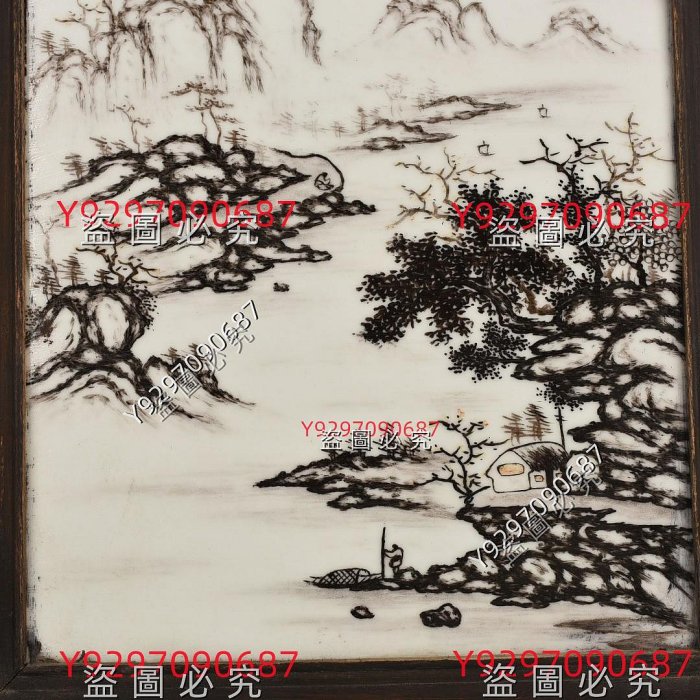 Y9297090687
盜圖必究
Y9297090687
盜圖必究
Y9297090687
盜圖必究
Y9297090687
盜圖必究
Y9297090687
盜圖必究
Y9297090687
盜圖必究
Y9297090687
盜圖必究